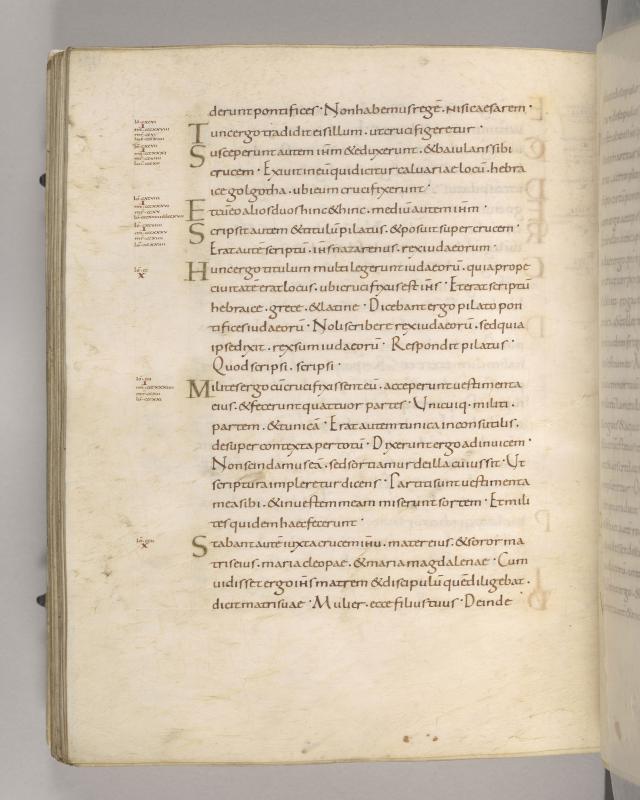 derunt pontifices · Non habemus regē . nisi caesarem ·
Tunc ergo tradidit eis illum . ut crucifigeretur ·
Susceperunt autem ihm & eduxerunt . & baiulans sibi
crucem · Exiuit in eū qui dicitur caluariae locū . hebra
ice golgotha . ubi eum crucifixerunt ·
Et cū eo alios duos hinc & hinc . mediū autem ihm ·
Scripsit autem & titulū pilatus . & posuit super crucem ·
Erat autē scriptū . ihs nazarenus . rex iudaeorum ·
Hunc ergo titulum multi legerunt iudaeorū . quia prope
ciuitatē erat locus . ubi crucifixus est ihs · Et erat scriptū
hebraice . grece . & latine · Dicebant ergo pilato pon
tifices iudaeorū · Noli scribere rex iudaeorū . sed quia
ipse dixit . rex sum iudaeorū · Respondit pilatus ·
Quod scripsi . scripsi ·
Milites ergo cū crucifixissent eū . acceperunt uestimenta
eius . & fecerunt quattuor partes · Unicuiq· militi ·
partem . & tunicā · Erat autem tunica inconsutilis .
desuper contexta per totū · Dixerunt ergo ad inuicem ·
Non scindamus eā . sed sortiamur de illa cuius sit · Ut
scriptura impleretur dicens · Partiti sunt uestimenta
mea sibi . & in uestem meam miserunt sortem · Et mili
tes quidem haec fecerunt ·
Stabant autē iuxta crucem ihu . mater eius . & soror ma
tris eius . maria cleopae . & maria magdalenae · Cum
uidisset ergo ihs matrem & discipulū quē diligebat .
dicit matri suae · Mulier . ecce filius tuus · Deinde